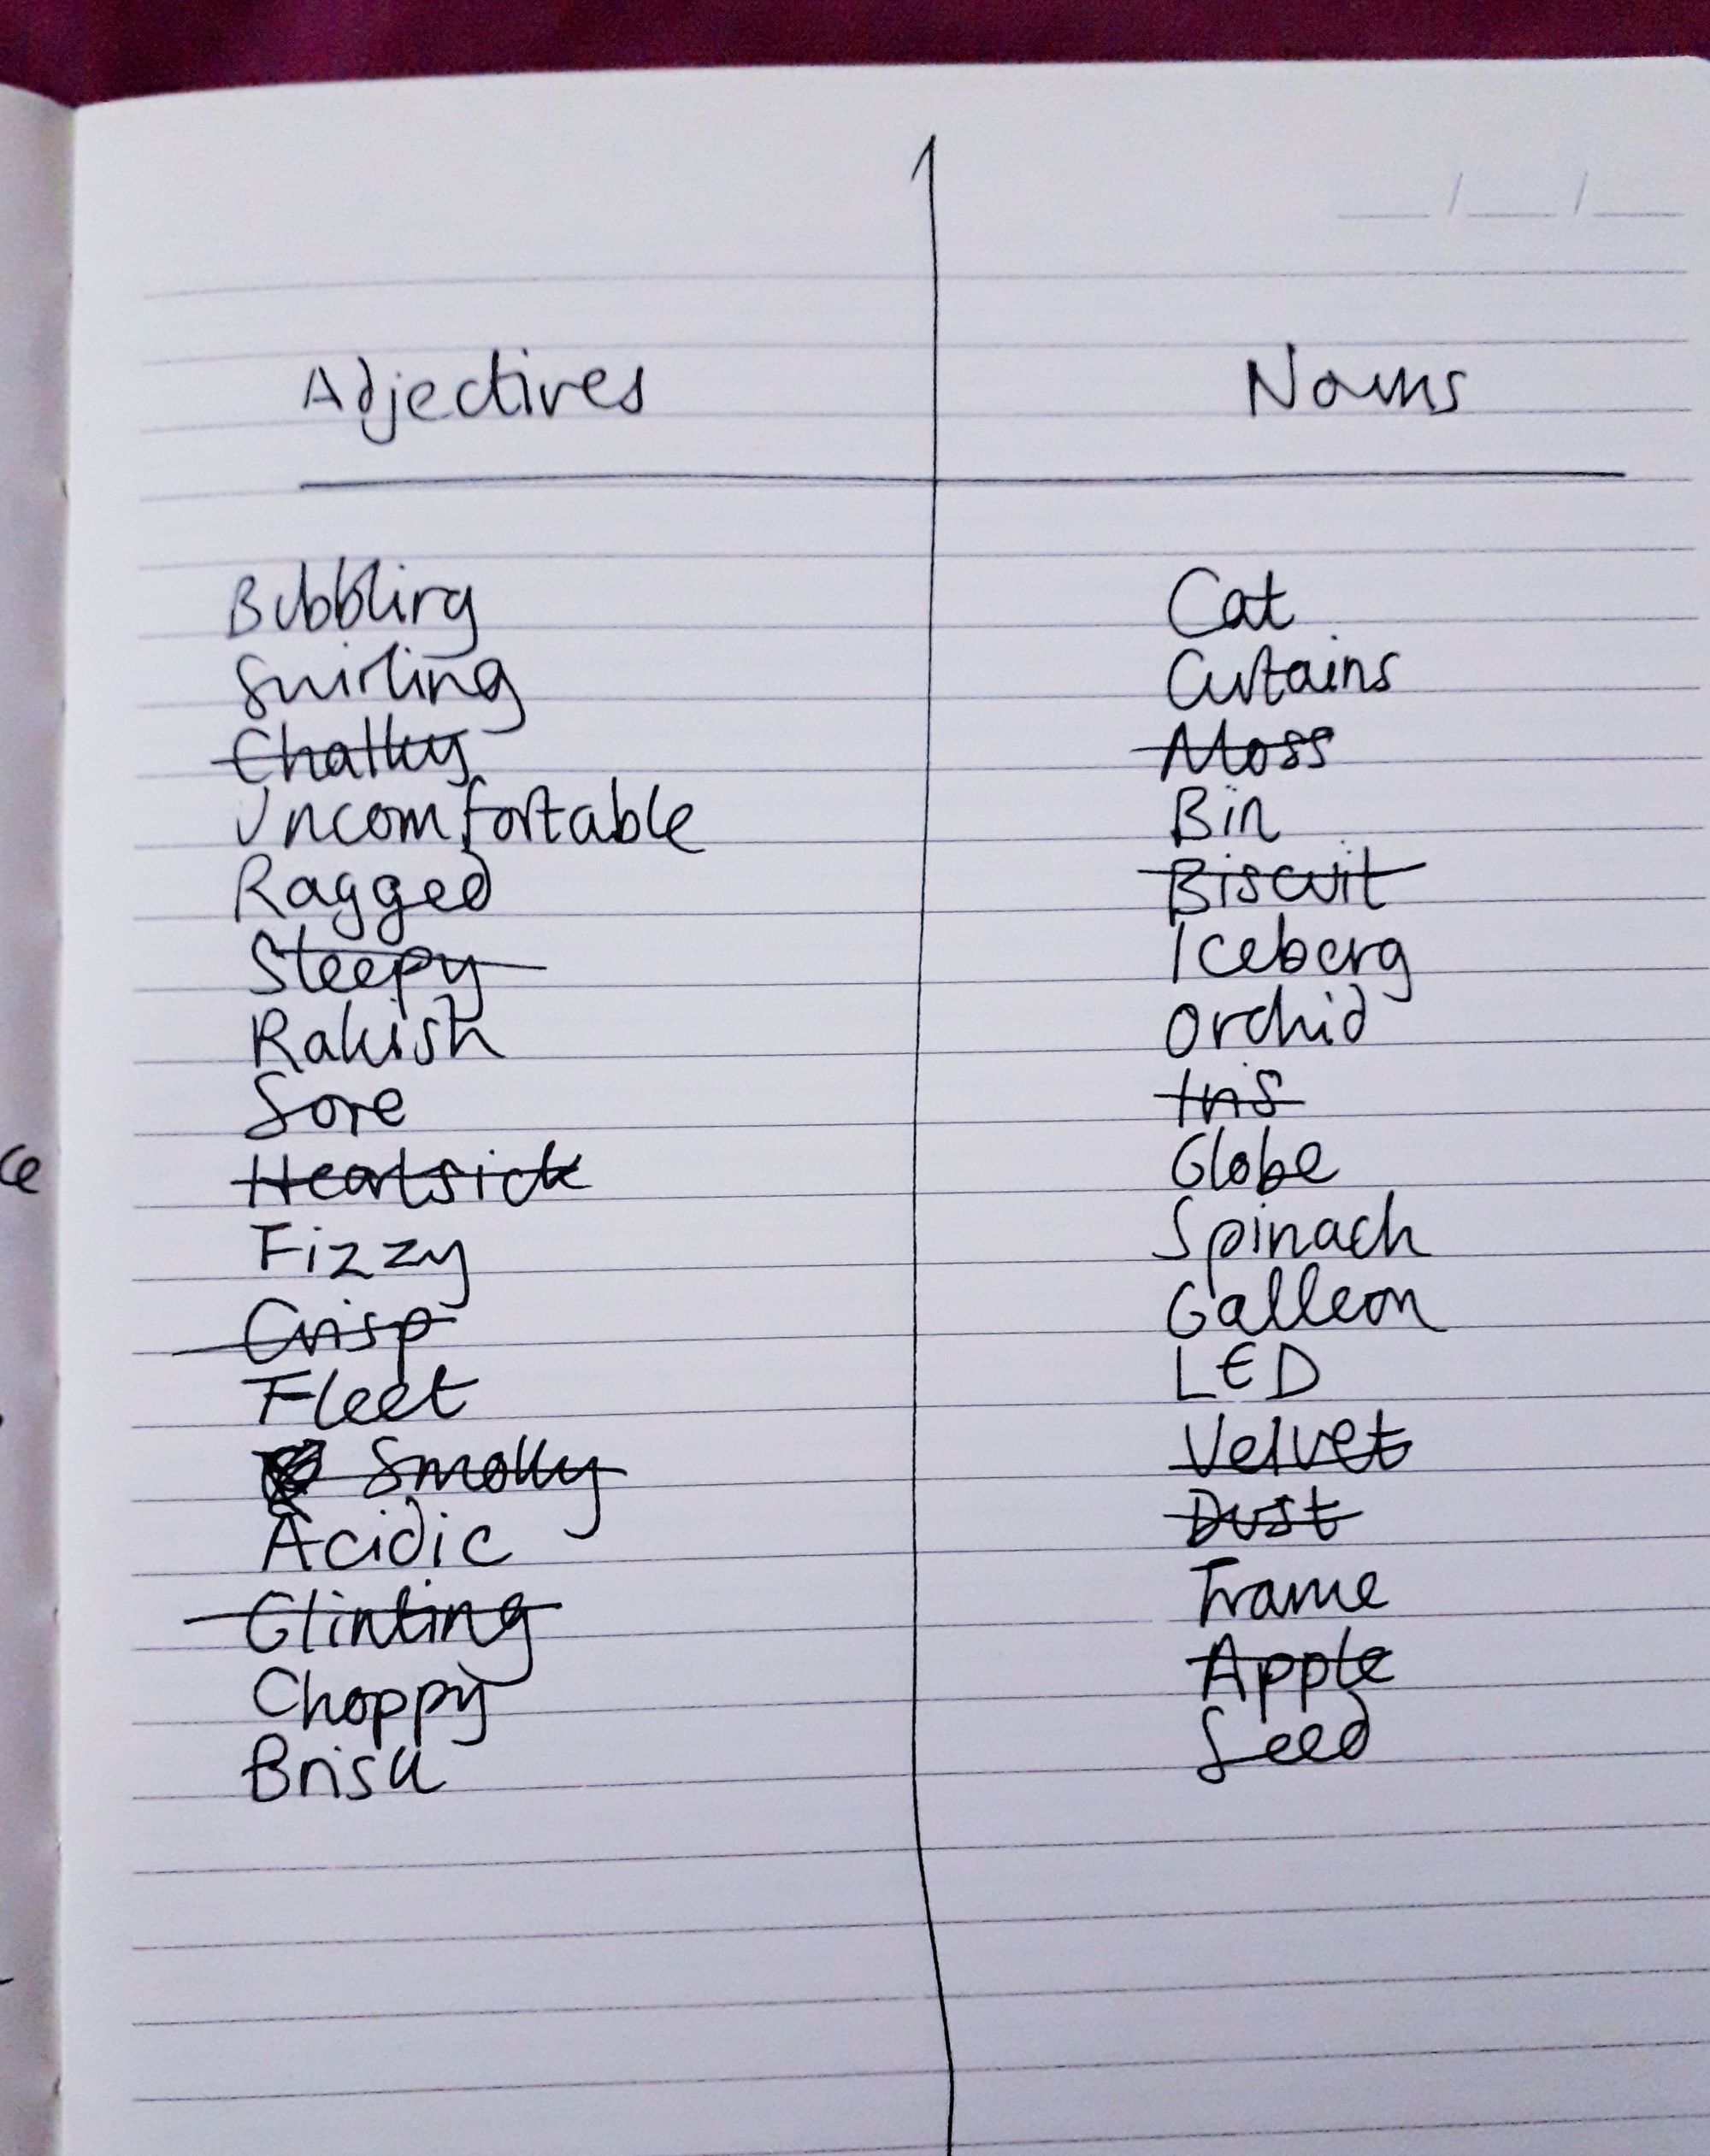 Adjectives Nouns
Bubbling Cat
Swirling Curtains
Chalky Moss
Uncomfortable Bin
Ragged Biscuit
Sleepy Iceberg
Rakish Orchid
Sore Iris
Heartsick Globe
Fizzy Spinach
Crisp Galleon
Fleet LED
Smokey Velvet
Acidic Dust
Glinting Frame
Choppy Apple
Brisk Seed